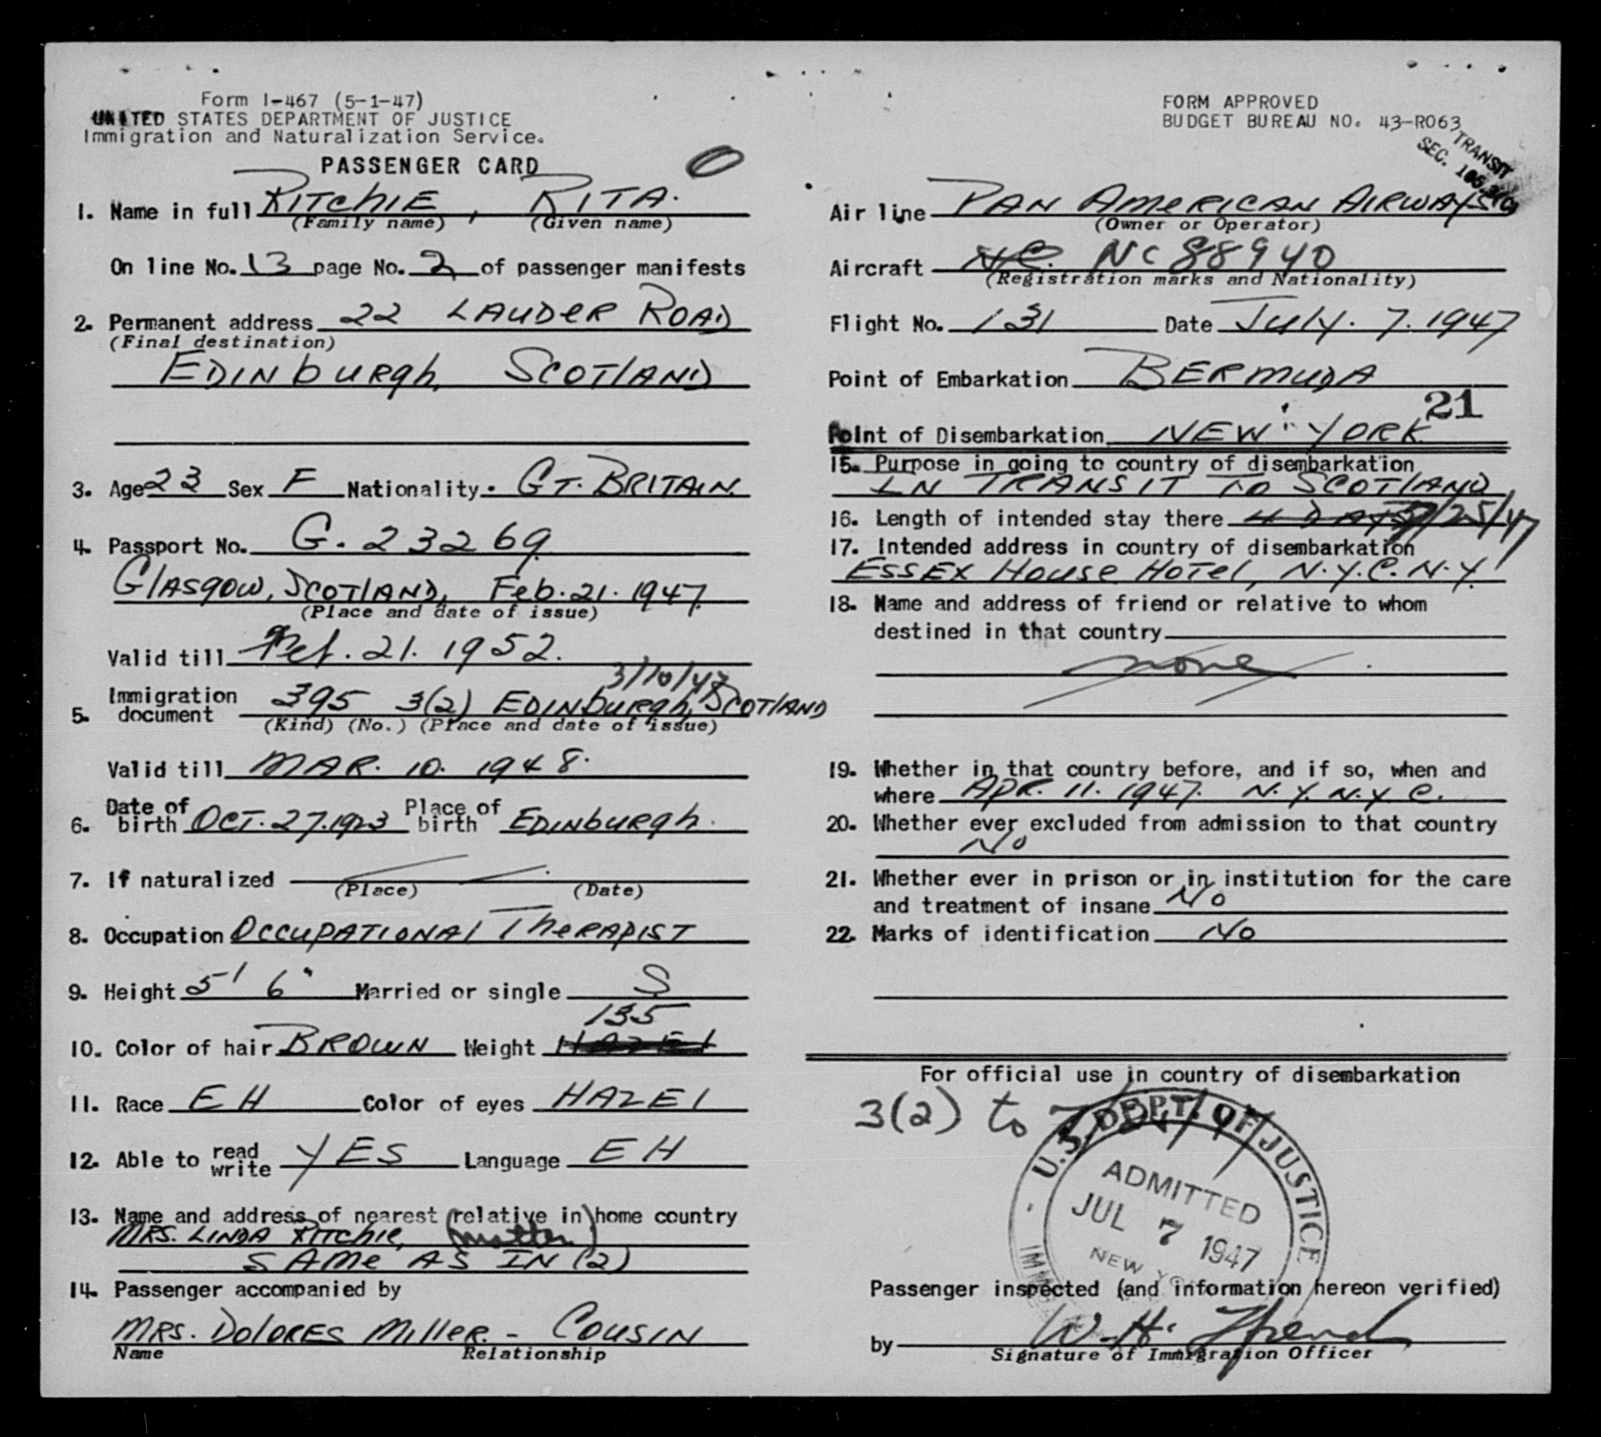 Form I-467 (5-1-47)
UNITED STATES DEPARTMENT OF JUSTICE
Immigration and Naturalization Service.
PASSENGER CARD
1. Name in full RITCHIE, RITA.
(Family name) (Given name)
On line No. 13 page No. 2 of passenger manifests
2. Permanent address 22 LAUDER ROAD
(Final destination)
EDINBURGH, SCOTLAND
3. Age 23 Sex F Nationality. GT. BRITAIN.
4. Passport No. G. 23269
GLASGOW, SCOTLAND, Feb. 21. 1947.
(Place and date of issue)
Valid till Feb. 21. 1952.
3/10/47
5. Immigration document 395 3(2) EDINBURGH, SCOTLAND
(Kind) (No.) (Place and date of issue)
Valid till MAR. 10. 1948.
6. Date of birth OCT. 27. 1923 Place of birth EDINBURGH.
7. If naturalized
(Place) (Date)
8. Occupation OCCUPATIONAL THERAPIST
9. Height 5' 6" Married or single S
135
10. Color of hair BROWN Weight HAZEL
11. Race EH Color of eyes HAZEL
12. Able to read write YES Language EH
13. Name and address of nearest (relative in) home country
MRS. LINDA RITCHIE, (mother)
SAME AS IN (2)
14. Passenger accompanied by
MRS. DOLORES MILLER - COUSIN
Name Relationship
FORM APPROVED
BUDGET BUREAU NO. 43-R063
TRANSIT
SEC.
Air line PAN AMERICAN AIRWAYS
(Owner or Operator)
Aircraft NC. NC 88940
(Registration marks and Nationality)
Flight No. 131 Date July. 7. 1947
Point of Embarkation BERMUDA
21
Point of Disembarkation NEW YORK
15. Purpose in going to country of disembarkation
IN TRANSIT TO SCOTLAND
16. Length of intended stay there 4 DAYS 7/25/47
17. Intended address in country of disembarkation
ESSEX HOUSE HOTEL, N.Y.C. N.Y.
18. Name and address of friend or relative to whom
destined in that country
none
19. Whether in that country before, and if so, when and
where APR. 11. 1947. N.Y. N.Y.C.
20. Whether ever excluded from admission to that country
No
21. Whether ever in prison or in institution for the care
and treatment of insane No
22. Marks of identification No
For official use in country of disembarkation
3(2) to
U.S. DEPT. OF JUSTICE
ADMITTED
JUL 7 1947
NEW YORK
Passenger inspected (and information hereon verified)
by W. H.
Signature of Immigration Officer